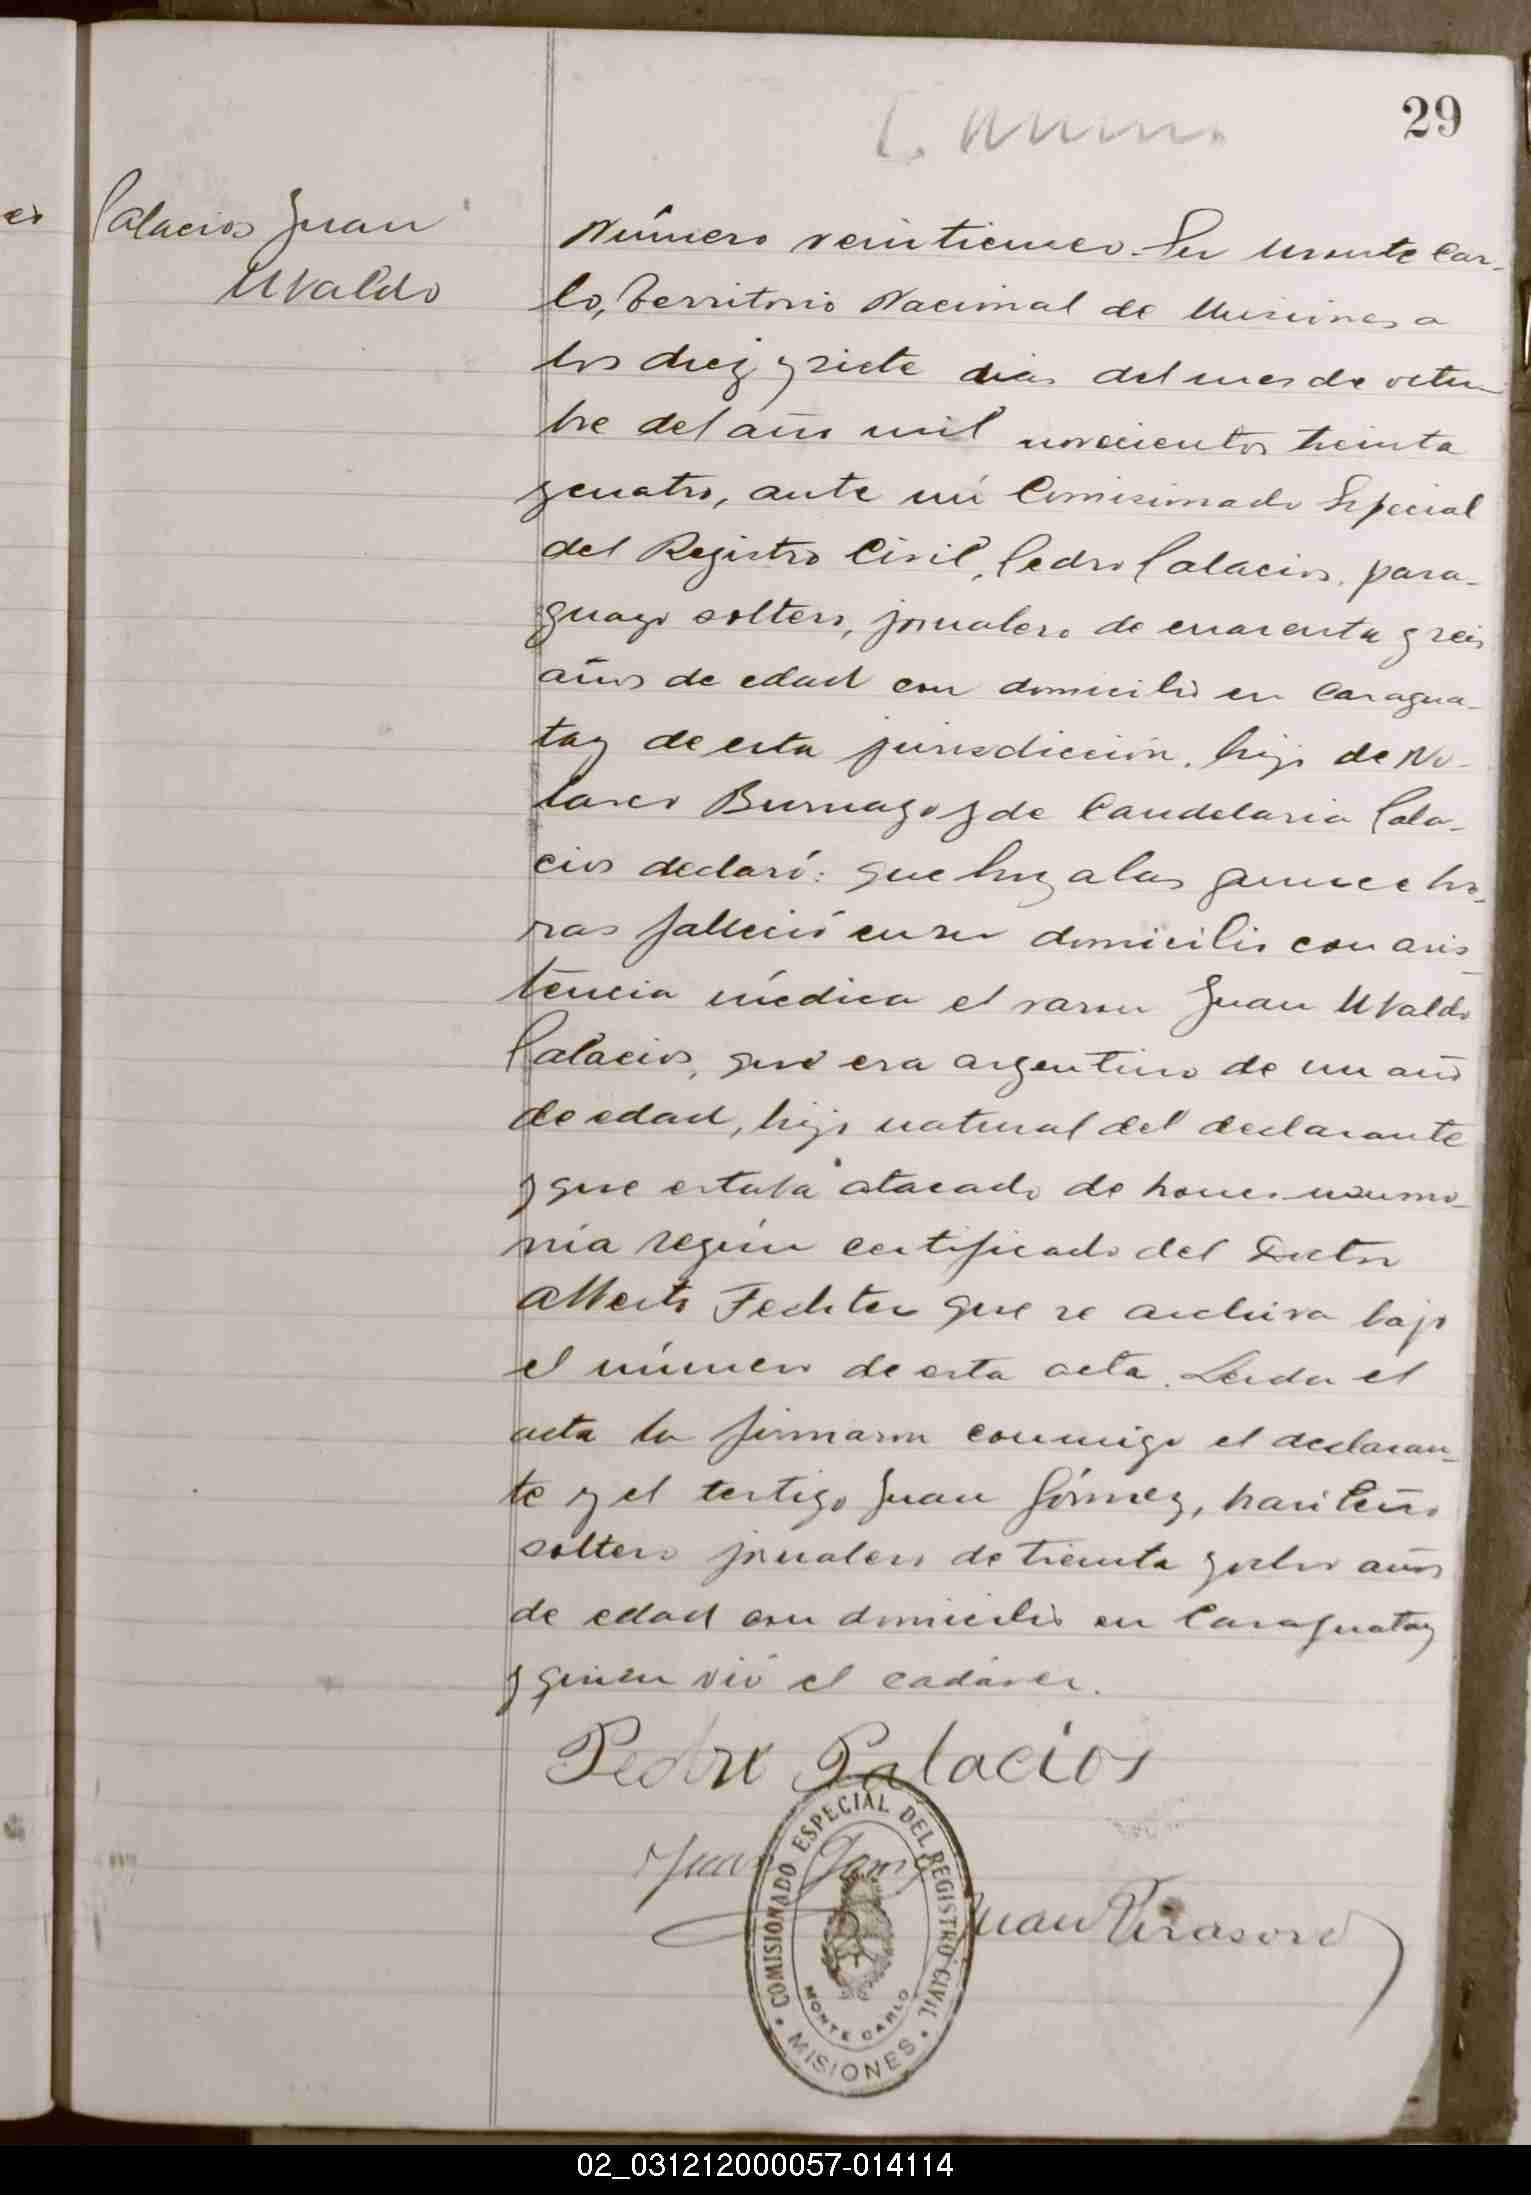 29
Palacios Juan
Uvaldo
Número veinticinco. En Monte Car-
lo, Territorio Nacional de Misiones a
los diez y siete dias del mes de octu-
bre del año mil novecientos treinta
y cuatro, ante mí Comisionado Especial
del Registro Civil, Pedro Palacios, para-
guayo soltero, jornalero de cuarenta y seis
años de edad con domicilio en Caragua-
tay de esta jurisdicción, hijo de No-
lasco y de Candelaria Pala-
cios declaró: que hoy a las quince ho-
ras falleció en su domicilio con asis-
tencia médica el varon Juan Uvaldo
Palacios, que era argentino de un año
de edad, hijo natural del declarante
y que estaba atacado de bronconeumo-
nía según certificado del Doctor
Alberto Fechter que se archiva bajo
el número de esta acta. Leida el
acta la firmaron conmigo el declaran-
te y el testigo Juan Gómez, brasileño
soltero jornalero de treinta y ocho años
de edad con domicilio en Caraguatay
y quien vió el cadáver.
Pedro Palacios
Juan Gomez
Juan Virasoro
COMISIONADO ESPECIAL DEL REGISTRO CIVIL
MONTE CARLO
MISIONES
02_031212000057-014114